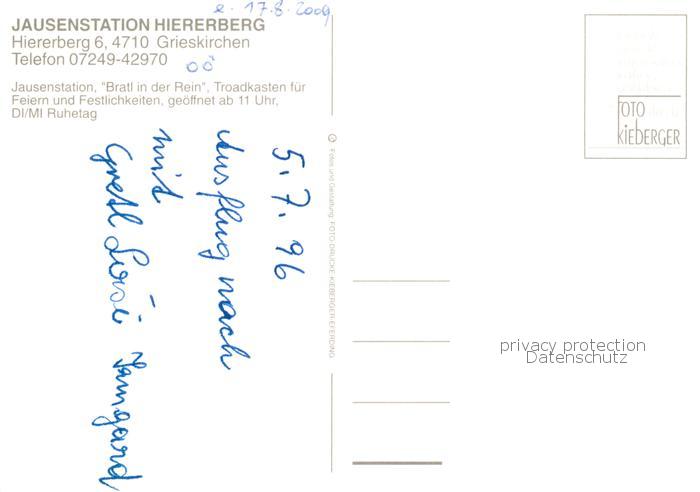 e. 17.8.2009
JAUSENSTATION HIERERBERG
Hiererberg 6, 4710 Grieskirchen
Telefon 07249-42970
OÖ
Jausenstation, "Bratl in der Rein", Troadkasten für
Feiern und Festlichkeiten, geöffnet ab 11 Uhr,
DI/MI Ruhetag
5.7.96
Ausflug nach
mit
Gretl Irmgard
Fotos und Gestaltung: FOTO-DRUCKE KIEBERGER EFERDING
FOTO
KIEBERGER
privacy protection
Datenschutz